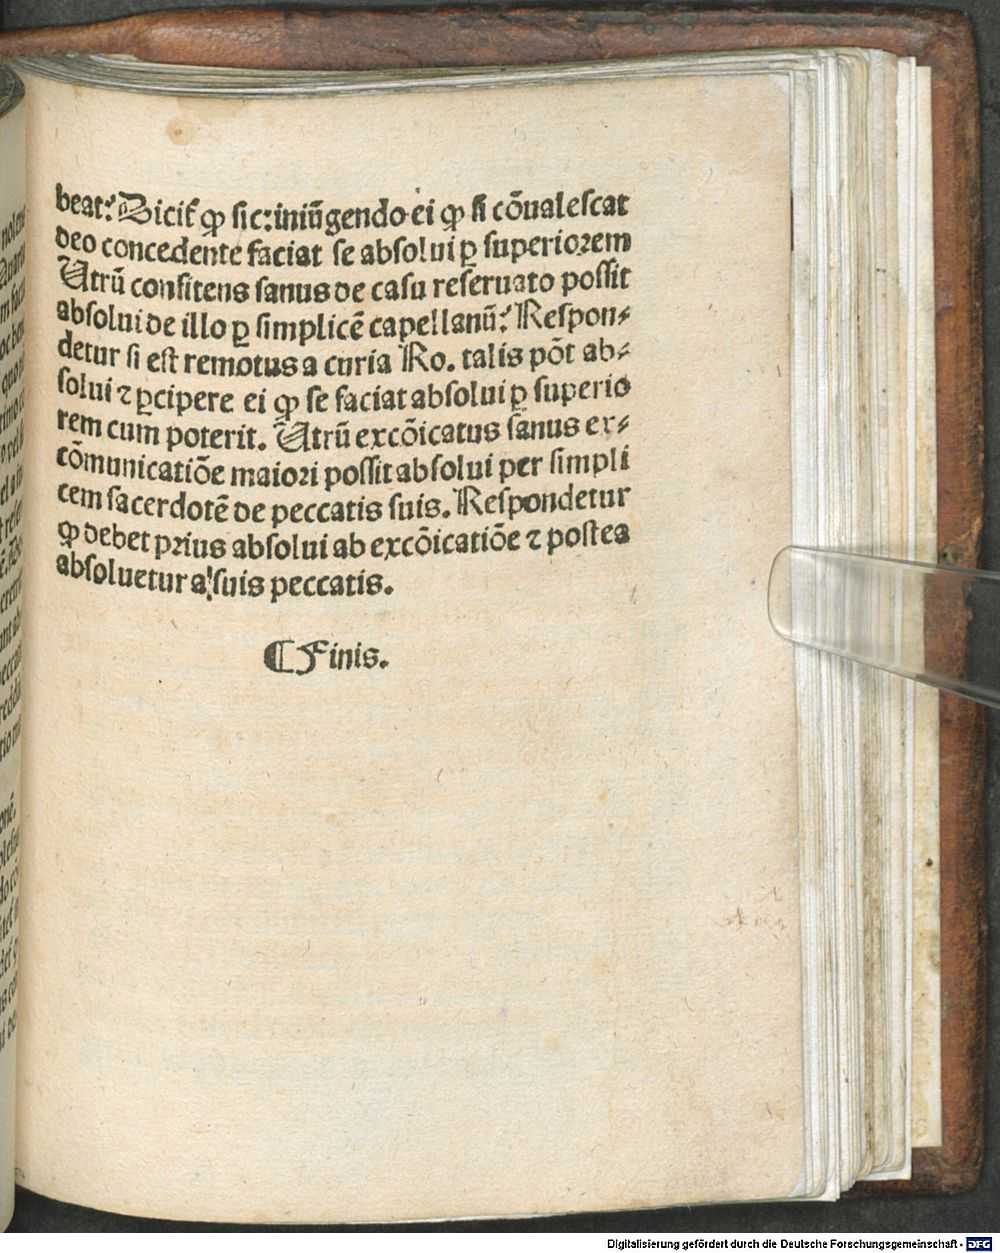 beat: Dicit̄ ꝙ sic: iniūgendo ei ꝙ si cōualescat
deo concedente faciat se absolui ꝑ superiorem
Utrū confitens sanus de casu reseruato possit
absolui de illo ꝑ simplicē capellanū: Respon-
detur si est remotus a curia Ro. talis pōt ab-
solui ⁊ ꝑcipere ei ꝙ se faciat absolui ꝑ superio
rem cum poterit. Utrū excōicatus sanus ex-
cōmunicatiōe maiori possit absolui per simpli
cem sacerdotē de peccatis suis. Respondetur
ꝙ debet prius absolui ab excōicatiōe ⁊ postea
absoluetur a suis peccatis.
¶ Finis.
Digitalisierung gefördert durch die Deutsche Forschungsgemeinschaft - DFG